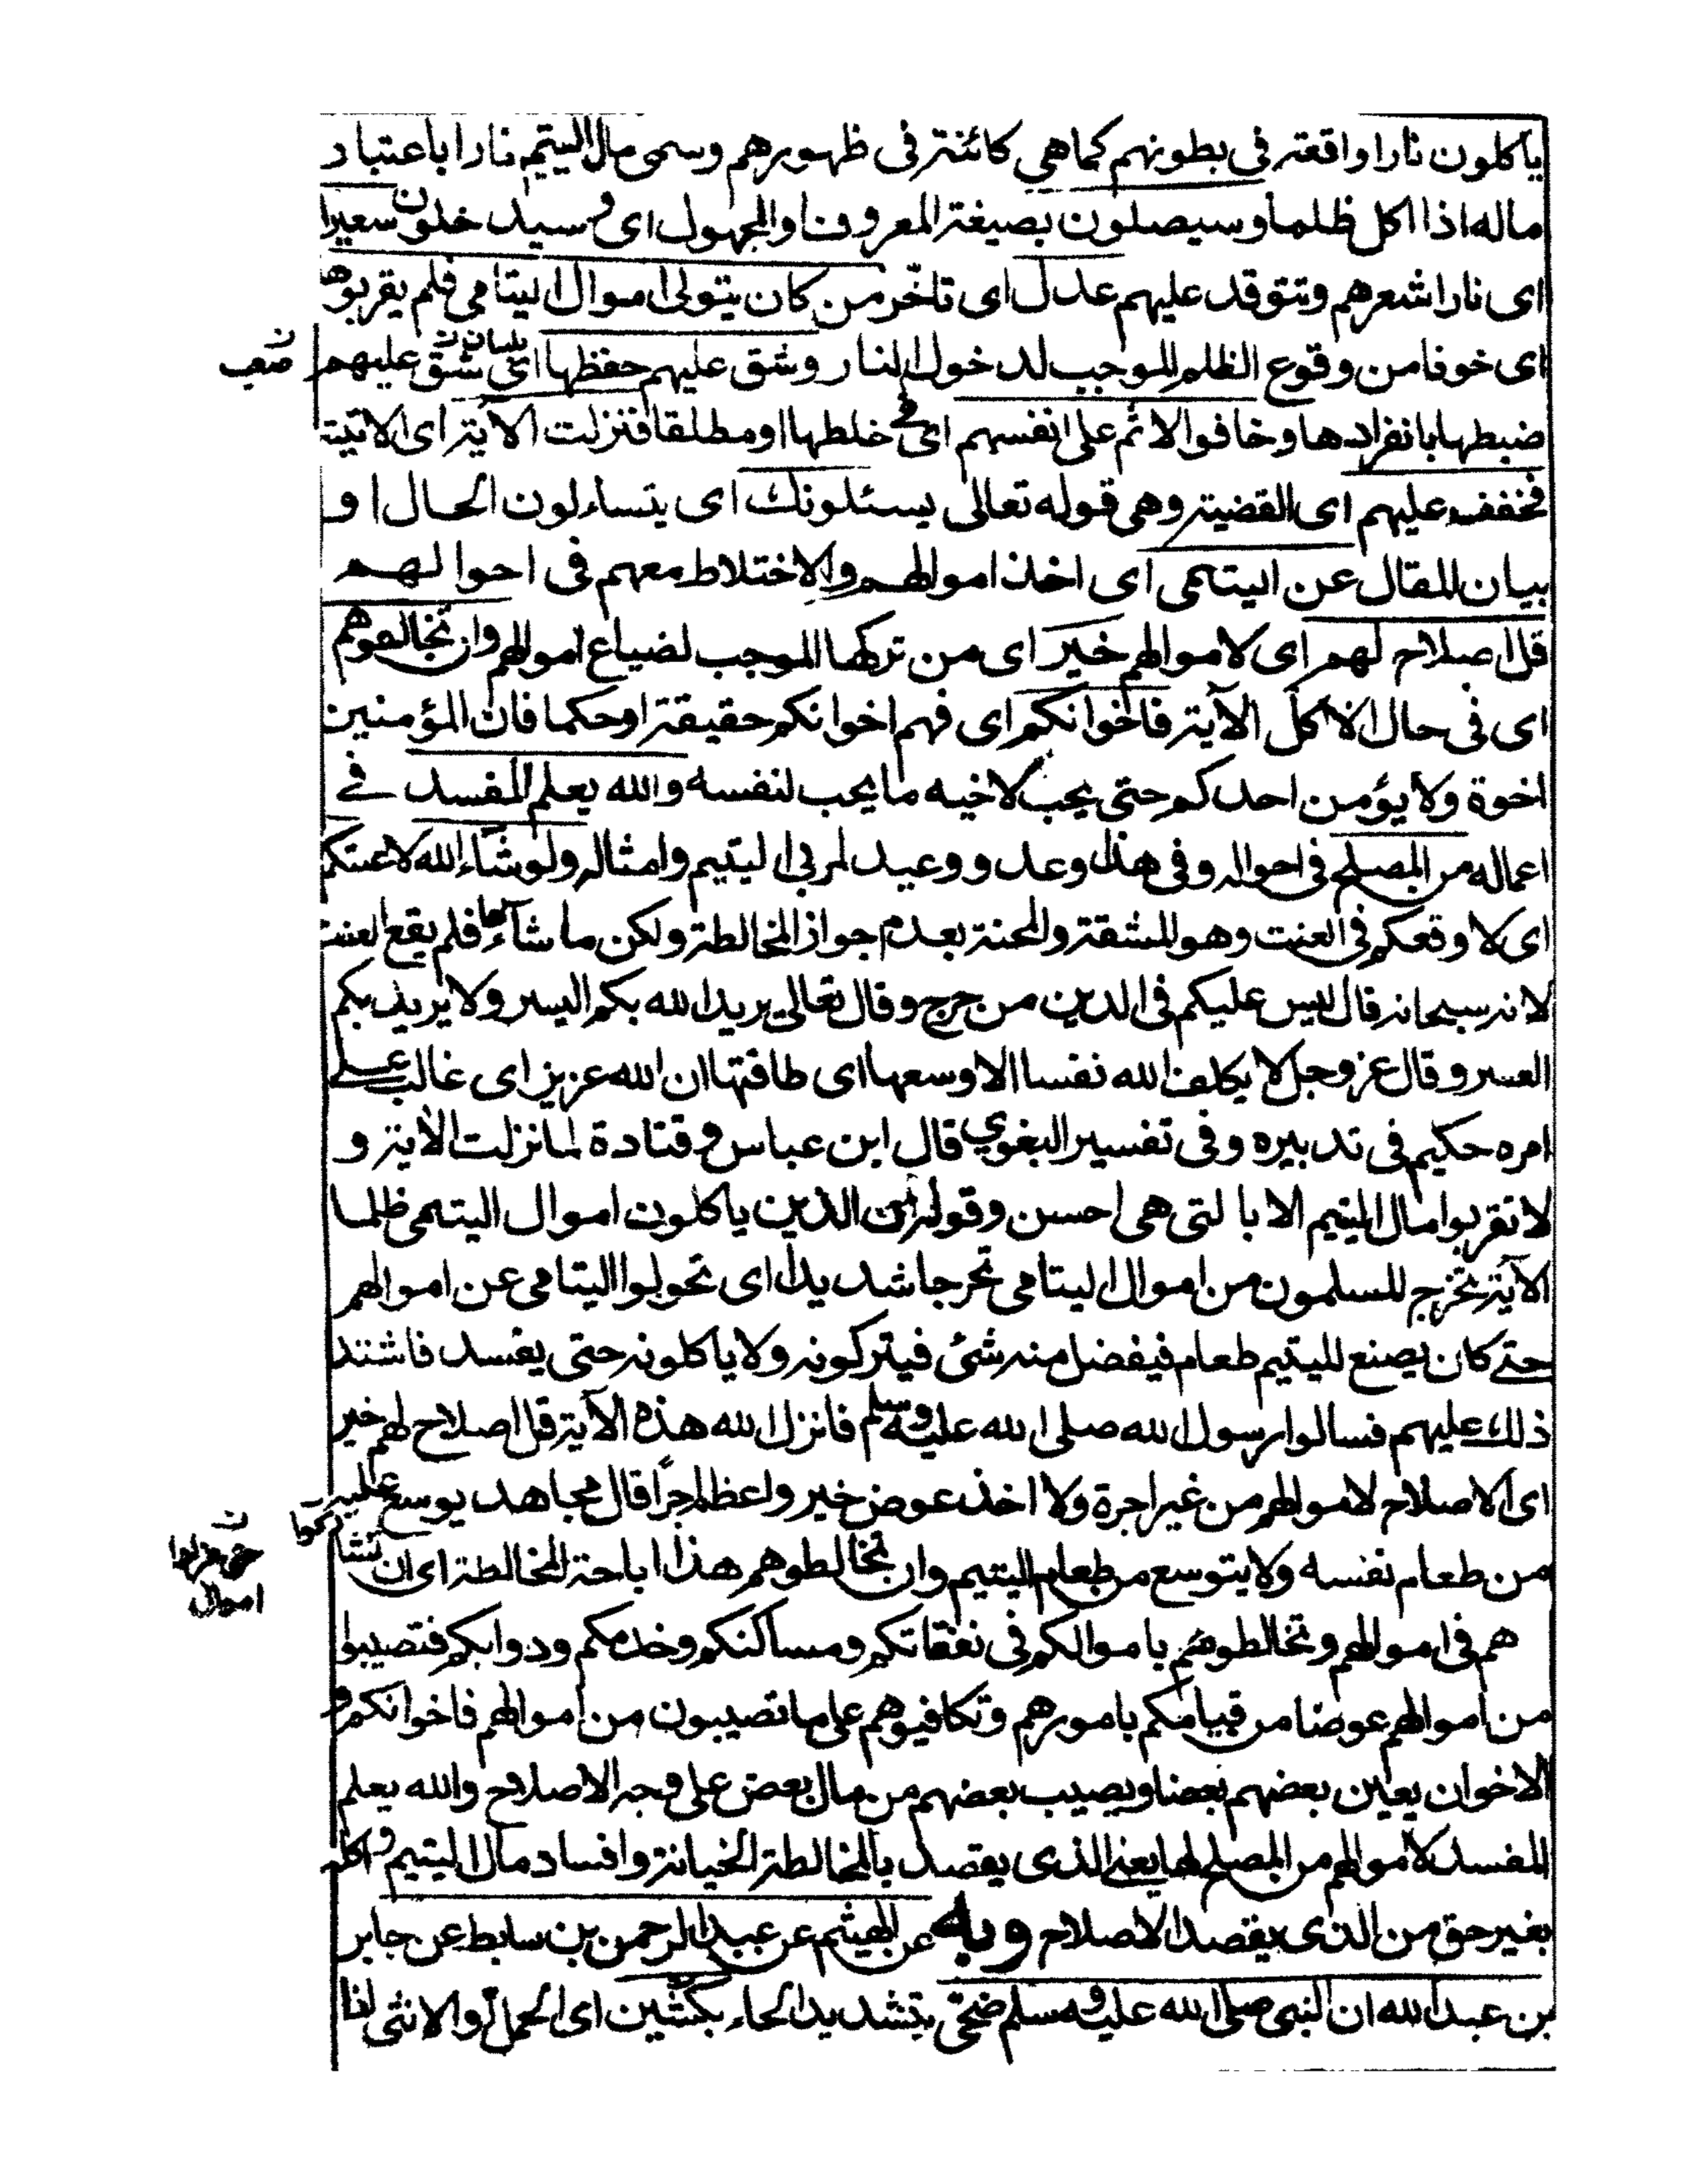 ياكلون نارا واقعة فى بطونهم كما هي كائنة فى ظهورهم وسمى مال اليتيم نارا باعتبار
ماله اذا اكل ظلما وسيصلون بصيغة المعروف والمجهول اى وسيدخلون سعيرا
اى نارا شعرهم وتتوقد عليهم عدل اى تاخّر من كان يتولى اموال اليتامى فلم يقربوها
اى خوفا من وقوع الظلم الموجب لدخول النار وشق عليهم حفظها اى شق عليهم
ضبطها بانفرادها وخافوا الاثم على انفسهم اى فى خلطها او مطلقا فنزلت الآية اى الاتية
فخفف عليهم اى القضية وهى قوله تعالى يسئلونك اى يتساءلون الحال او
بيان المقال عن اليتمى اى اخذ اموالهم والاختلاط معهم فى احوالهم
قل اصلاح لهم اى لاموالهم خير اى من تركها الموجب لضياع اموالهم وان تخالطوهم
اى فى حال الاكل الآية فاخوانكم اى فهم اخوانكم حقيقة او حكما فان المؤمنين
اخوة ولا يؤمن احدكم حتى يحب لاخيه ما يحب لنفسه والله يعلم المفسد فے
اعماله من المصلح فى احواله وفى هذا وعد ووعيد لمربى اليتيم وامثاله ولو شاء الله لاعنتكم
اى لاوقعكم فى العنت وهو المشقة والمحنة بعدم جواز المخالطة ولكن ما شاءها فلم يقع العنت
لانه سبحانه قال ليس عليكم فى الدين من حرج وقال تعالى يريد الله بكم اليسر ولا يريد بكم
العسر وقال عز وجل لا يكلف الله نفسا الا وسعها اى طاقتها ان الله عزيز اى غالب علے
امره حكيم فى تدبيره وفى تفسير البغوي قال ابن عباس وقتادة لما نزلت الآية و
لا تقربوا مال اليتيم الا بالتى هى احسن وقوله ان الذين ياكلون اموال اليتمى ظلما
الآية تحرج المسلمون من اموال اليتامى تحرجا شديدا اى تحولوا اليتامى عن اموالهم
حتے كان يصنع لليتيم طعام فيفضل منه شئ فيتركونه ولا ياكلونه حتى يفسد فاشتد
ذلك عليهم فسالوا رسول الله صلى الله عليه وسلم فانزل الله هذه الآية قل اصلاح لهم خير
اى الاصلاح لاموالهم من غير اجرة ولا اخذ عوض خير واعظم اجراً قال مجاهد يوسع عليه
من طعام نفسه ولا يتوسع من طعام اليتيم وان تخالطوهم هذا اباحة المخالطة اى ان تشاركوا
هم فى اموالهم وتخالطوهم باموالكم فى نفقاتكم ومساكنكم وخدمكم ودوابكم فتصيبوا
من اموالهم عوضا من قيامكم بامورهم وتكافيوهم على ما تصيبون من اموالهم فاخوانكم و
الاخوان يعين بعضهم بعضا ويصيب بعضهم من مال بعض على وجه الاصلاح والله يعلم
المفسد لاموالهم من المصلح لها يعنے الذى يقصد بالمخالطة الخيانة وافساد مال اليتيم واكله
بغير حق من الذى يقصد الاصلاح وبه عن الهيثم عن عبد الرحمن بن سابط عن جابر
بن عبد الله ان النبى صلى الله عليه وسلم ضحّى بتشديد الحاء بكبشين اى الحمل
اموال